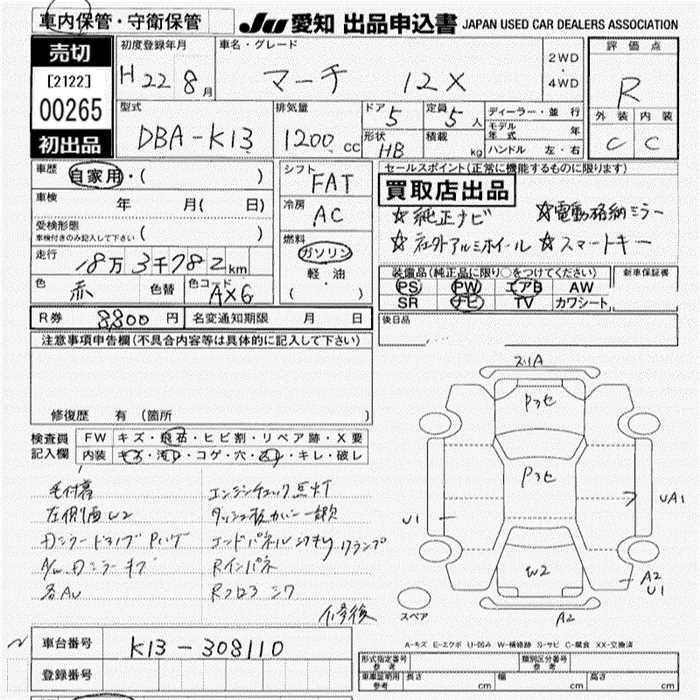 車内保管・守衛保管
JU 愛知 出品申込書 JAPAN USED CAR DEALERS ASSOCIATION
売切
[2122]
00265
初出品
初度登録年月
H 22 8月
車名・グレード
マーチ 12X
2WD
・
4WD
評価点
R
外装 内装
C C
型式
DBA-K13
排気量
1200 CC
ドア 5
定員 5人
形状 HB
積載 kg
ディーラー・並行
モデル年式 年
ハンドル 左・右
車歴 自家用・( )
車検 年 月( 日)
受検形態
車検付きのみ記入して下さい ( )
走行 18万3千782km
色 赤 色替 色コード AXG
シフト FAT
冷房 AC
燃料
ガソリン
軽油
( )
セールスポイント(正常に機能するものに限ります)
買取店出品
☆純正ナビ ☆電動格納ミラー
☆社外アルミホイール ☆スマートキー
装備品(純正品に限り○をつけてください) 新車保証書
PS PW エアB AW
SR ナビ TV カワシート
後日品
R券 8,800円 名変通知期限 月 日
注意事項申告欄(不具合内容等は具体的に記入して下さい)
修復歴 有 (箇所 )
検査員記入欄
FW キズ・飛石・ヒビ割・リペア跡・X要
内装 キズ・汚レ・コゲ・穴・キレ・破レ
エンジンチェック点灯
左側面W2
Rインパネ
各AU
Rフロア
修復
スリA
Pフセ
Pフセ
U1
UA1
W2
A2
U1
スペア
A2
A-キズ E-エクボ U-凹み W-補修跡 S-サビ C-腐食 XX-交換済
車台番号 K13-308110
登録番号
形式指定番号 参考
類別区分番号 参考
車庫証明用 参考 長さ cm 幅 cm 高さ cm